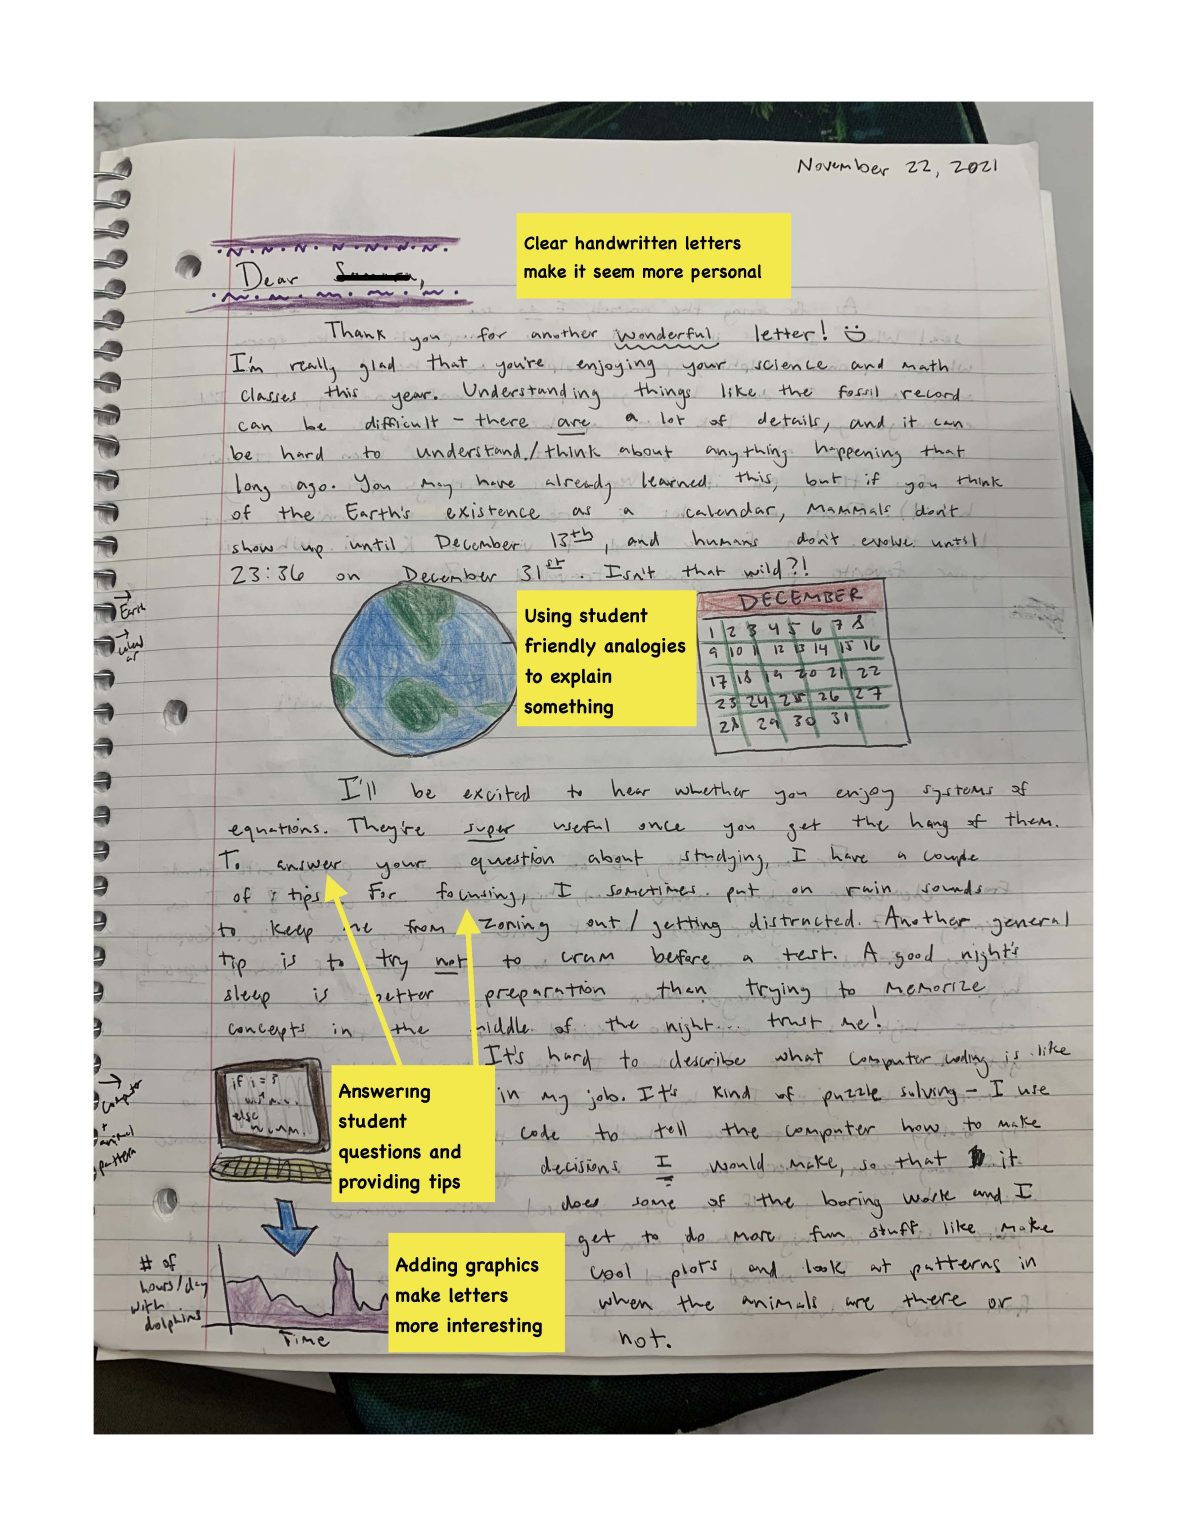 November 22, 2021
Clear handwritten letters
make it seem more personal
Dear
Thank you for another wonderful letter!
I'm really glad that you're enjoying your science and math
classes this year. Understanding things like the fossil record
can be difficult - there are a lot of details, and it can
be hard to understand/think about anything happening that
long ago. You may have already learned this, but if you think
of the Earth's existence as a calendar, mammals don't
show up until December 13th, and humans don't evolve until
23:36 on December 31st. Isn't that wild?!
Earth
Using student
friendly analogies
to explain
something
DECEMBER
1 2 3 4 5 6 7 8
9 10 11 12 13 14 15 16
17 18 19 20 21 22
23 24 25 26 27
28 29 30 31
I'll be excited to hear whether you enjoy systems of
equations. They're super useful once you get the hang of them.
To answer your question about studying, I have a couple
of tips. For focusing, I sometimes put on rain sounds
to keep me from zoning out/getting distracted. Another general
tip is to try not to cram before a test. A good night's
sleep is better preparation than trying to memorize
concepts in the middle of the night... trust me!
It's hard to describe what computer coding is like
in my job. It's kind of puzzle solving - I use
code to tell the computer how to make
decisions I would make, so that it
does some of the boring work and I
get to do more fun stuff like make
cool plots and look at patterns in
when the animals are there or
not.
computer
+
animal
pattern
if i = 3
else
Answering
student
questions and
providing tips
Adding graphics
make letters
more interesting
# of
hours/day
with
dolphins
Time